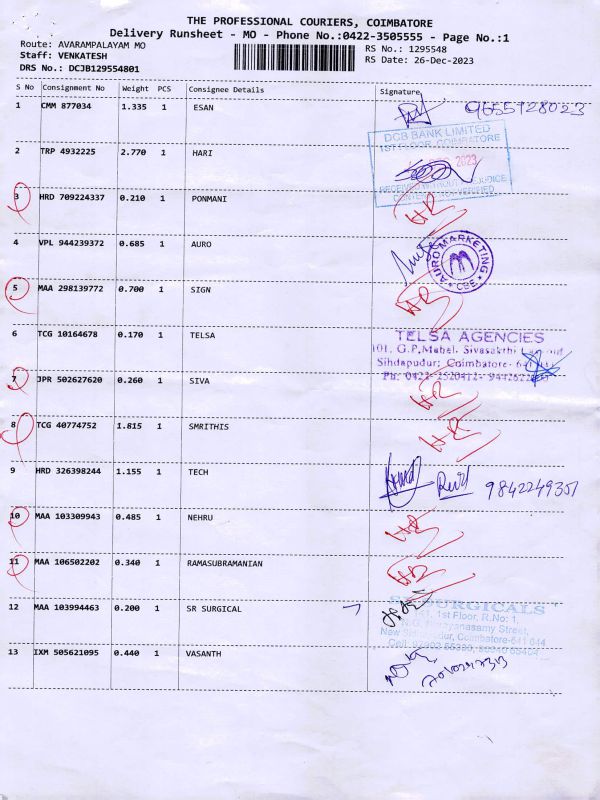 THE PROFESSIONAL COURIERS, COIMBATORE
Delivery Runsheet - MO - Phone No.:0422-3505555 - Page No.:1
Route: AVARAMPALAYAM MO
RS No.: 1295548
Staff: VENKATESH
RS Date: 26-Dec-2023
DRS No.: DCJB129554801
S No Consignment No Weight PCS Consignee Details Signature
1 CMM 877034 1.335 1 ESAN 9655928023
DCB BANK LIMITED
1ST FLOOR, COIMBATORE
2 TRP 4932225 2.770 1 HARI 2023
3 HRD 709224337 0.210 1 PONMANI HR
4 VPL 944239372 0.685 1 AURO
AURO MARKETING
CBE
5 MAA 298139772 0.700 1 SIGN HR
6 TCG 10164678 0.170 1 TELSA
TELSA AGENCIES
101, G.P.Mahal, Sivasakthi
Sihdapudur: Coimbatore-
Ph: 0422-2520412-
7 JPR 502627620 0.260 1 SIVA HR
8 TCG 40774752 1.815 1 SMRITHIS HR
9 HRD 326398244 1.155 1 TECH 9842249351
10 MAA 103309943 0.485 1 NEHRU HR
11 MAA 106502202 0.340 1 RAMASUBRAMANIAN HR
12 MAA 103994463 0.200 1 SR SURGICAL
SURGICALS
1st Floor, R.No: 1,
Narayanasamy Street,
Coimbatore-641 044
13 IXM 505621095 0.440 1 VASANTH